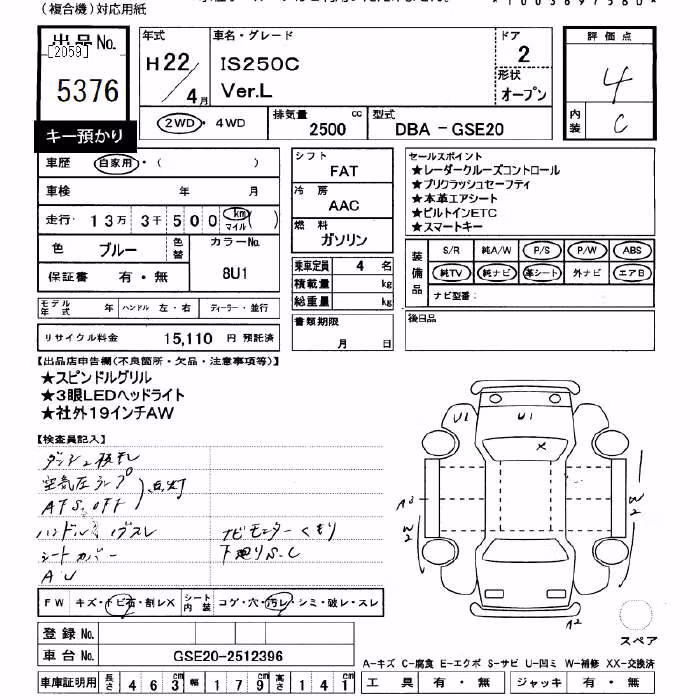 (複合機)対応用紙
出品No.
[2059]
5376
キー預かり
年式
H22/4月
車名・グレード
IS250C
Ver.L
ドア
2
形状
オープン
評価点
4
内装
C
2WD・4WD
排気量
2500 cc
型式
DBA-GSE20
車歴 自家用・( )
車検 年 月
走行・13万3千500 km マイル ( )
色 ブルー 色替
カラーNo.
8U1
保証書 有・無
モデル年式 年 ハンドル 左・右 ディーラー・並行
リサイクル料金 15,110 円 預託済
シフト
FAT
冷房
AAC
燃料
ガソリン
乗車定員 4 名
積載量 kg
総重量 kg
書類期限
月 日
セールスポイント
★レーダークルーズコントロール
★プリクラッシュセーフティ
★本革エアシート
★ビルトインETC
★スマートキー
装備品
S/R 純A/W P/S P/W ABS
純TV 純ナビ 革シート 外ナビ エアB
ナビ型番:
後日品
【出品店申告欄(不良箇所・欠品・注意事項等)】
★スピンドルグリル
★3眼LEDヘッドライト
★社外19インチAW
【検査員記入】
空気圧ランプ
AFS.OFF
点灯
ハンドル スレ
シートカバー
AU
ナビモニターくもり
下廻りS.C
U1
U1
X
A3
W2
W2
A2
FW キズ・トビ石・割レX シート内装 コゲ・穴・汚レ・シミ・破レ・スレ
登録No.
車台No. GSE20-2512396
車庫証明用 長さ 463cm 幅 179cm 高さ 141cm
スペア
A-キズ C-腐食 E-エクボ S-サビ U-凹ミ W-補修 XX-交換済
工具 有・無 ジャッキ 有・無